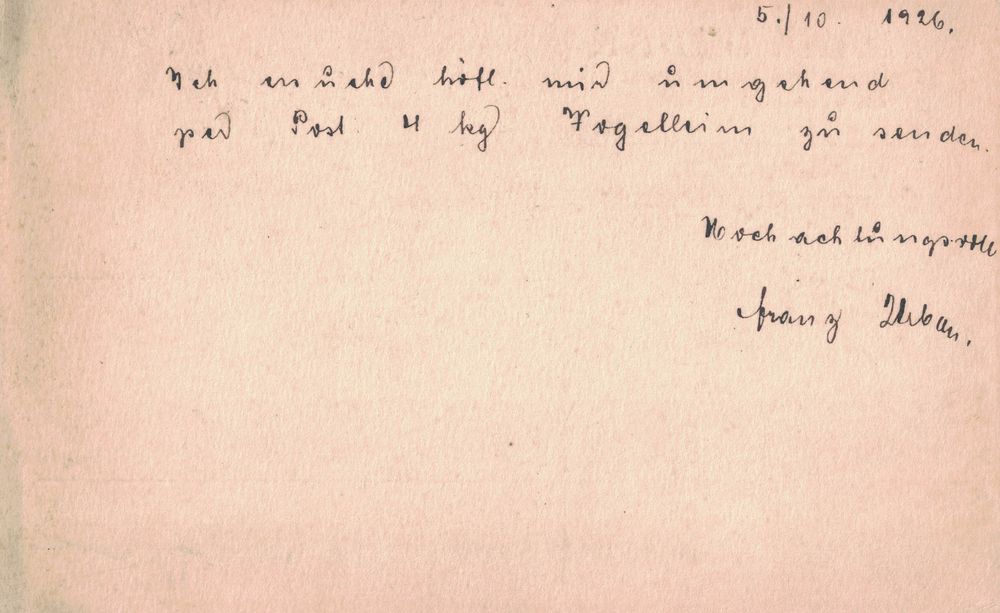 5./10. 1926.
Ich ersuche höfl. mir umgehend
per Post 4 kg Vogelleim zu senden.
Hochachtungsvoll
Franz Urban.